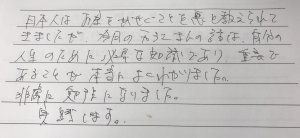 日本人はお金をかせぐことを悪と教えられて
きましたが、今月のえうこさんの話は、自分の
人生のために必要な勉強であり、重要で
あることが本当によくわかりました。
非常に勉強になりました。
見解します。